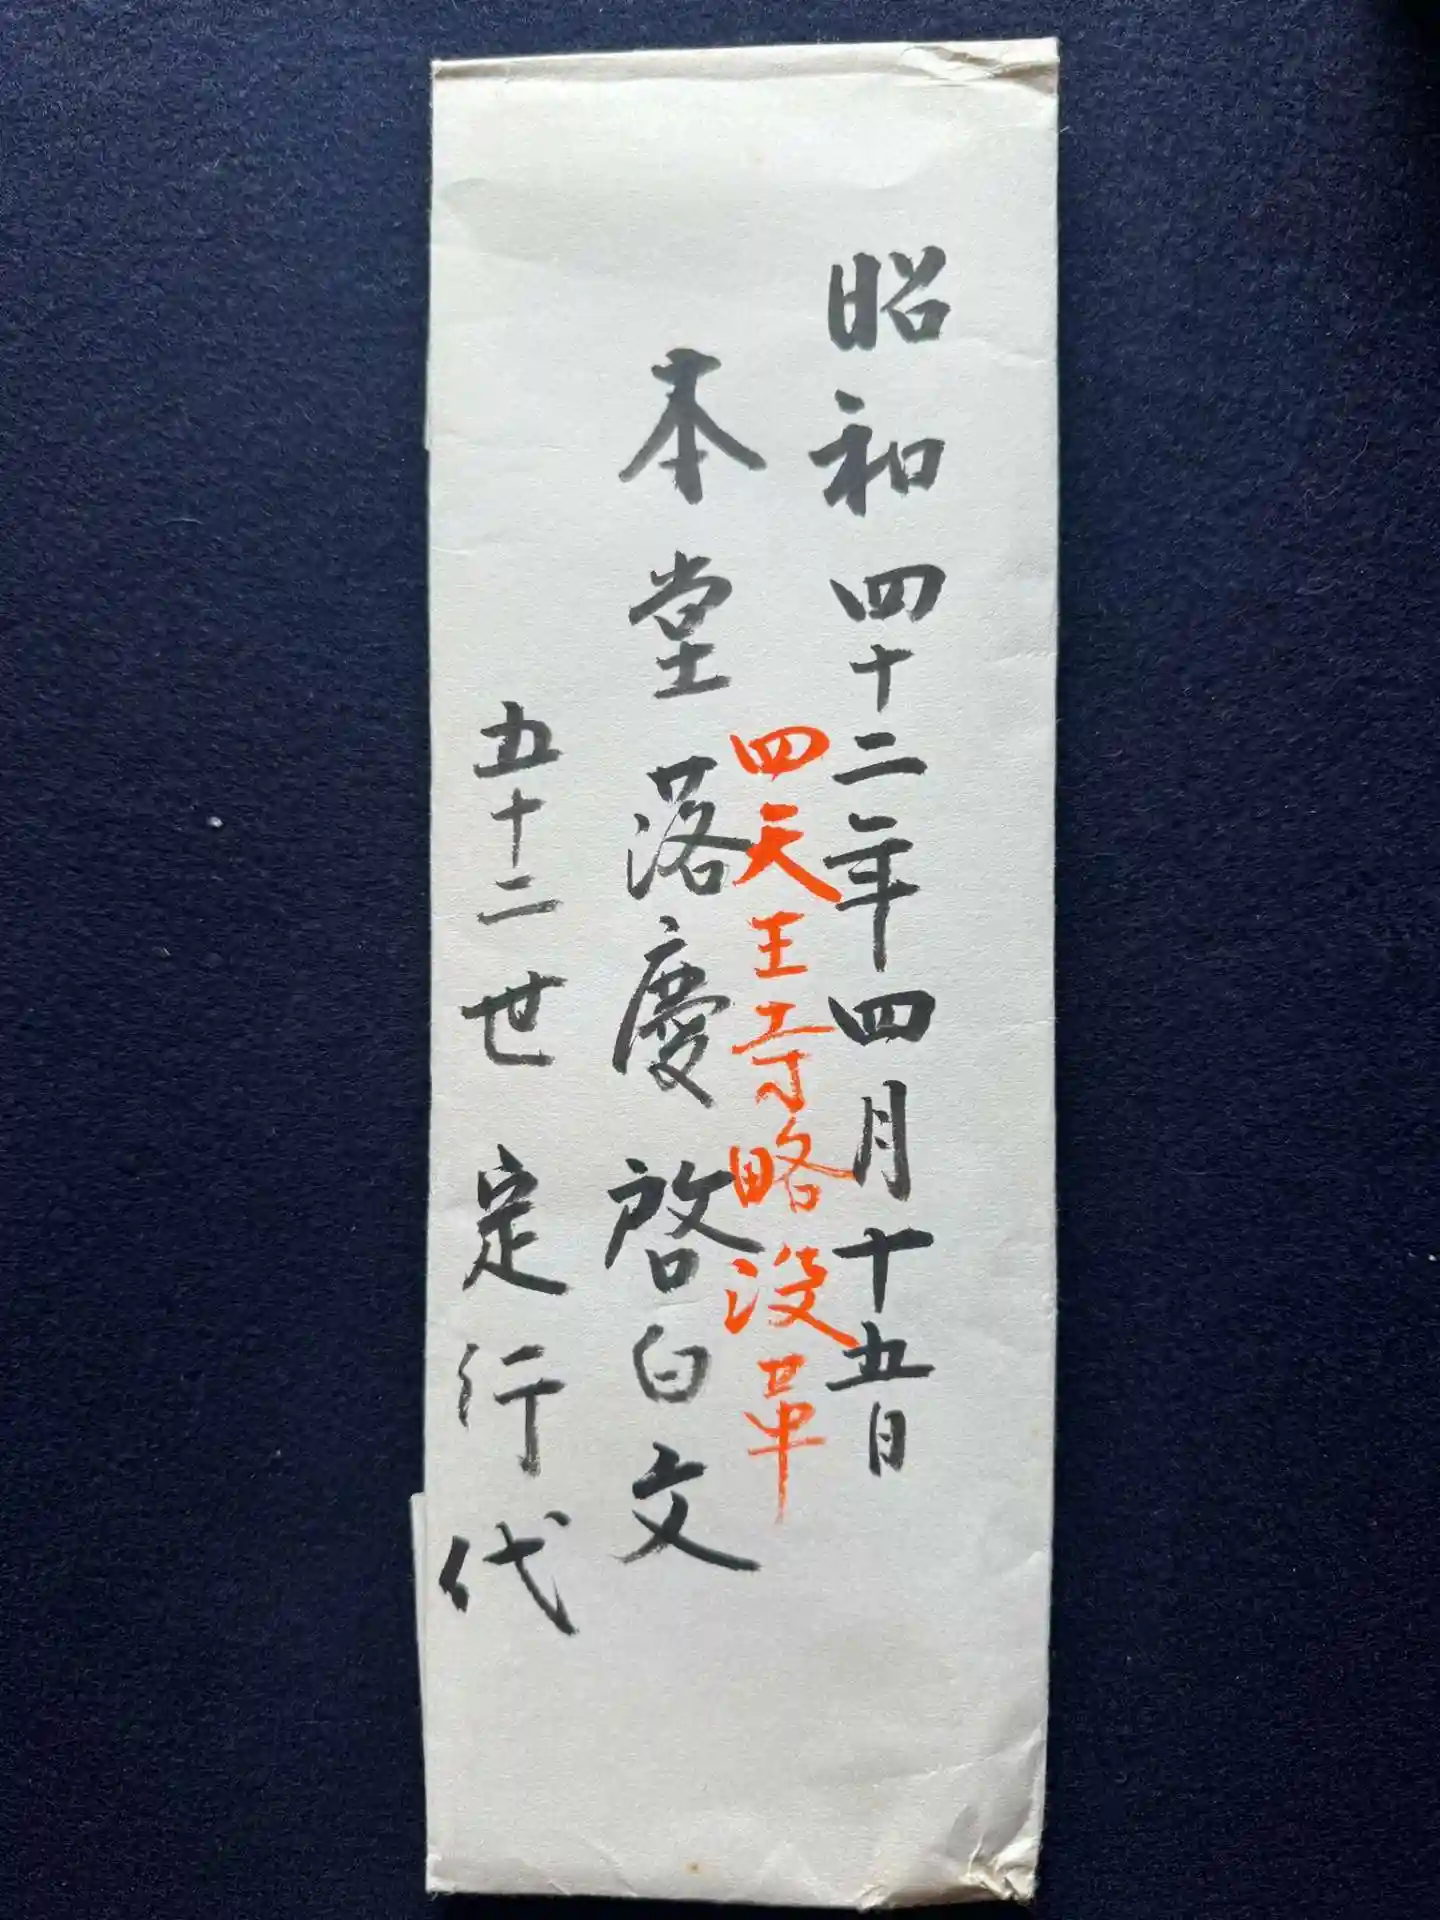 昭和四十二年四月十五日
四天王寺略没革
本堂落慶啓白文
五十二世定行代